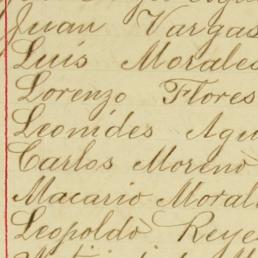 Juan Vargas
Luis Morales
Lorenzo Flores
Leonides
Carlos Moreno
Macario
Leopoldo